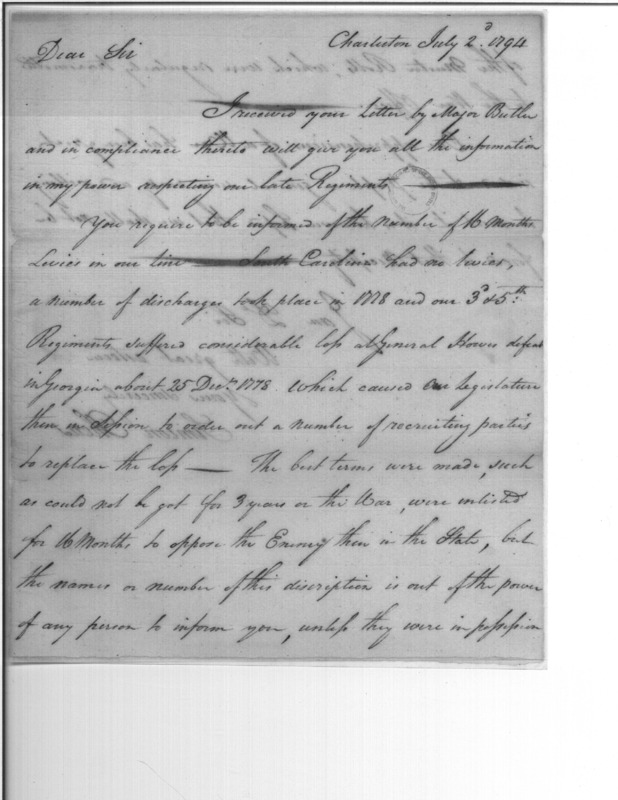 Charleston July 2d. 1794
Dear Sir
I received your Letter by Major Butler
and in compliance thereto will give you all the information
in my power respecting our late Regiments
You require to be informed of the number of 16 Months
Levies in our line South Carolina had no levies,
a number of discharges took place in 1778 and our 3d & 5th
Regiments suffered considerable loss at General Howes defeat
in Georgia about 25 Decr. 1778. Which caused our legislature
then in Session to order out a number of recruiting parties
to replace the loss — The best terms were made, such
as could not be got for 3 years or the War, were inlisted
for 16 Months to oppose the Enemy then in the State, but
the names or number of this discription is out of the power
of any person to inform you, unless they were in possession